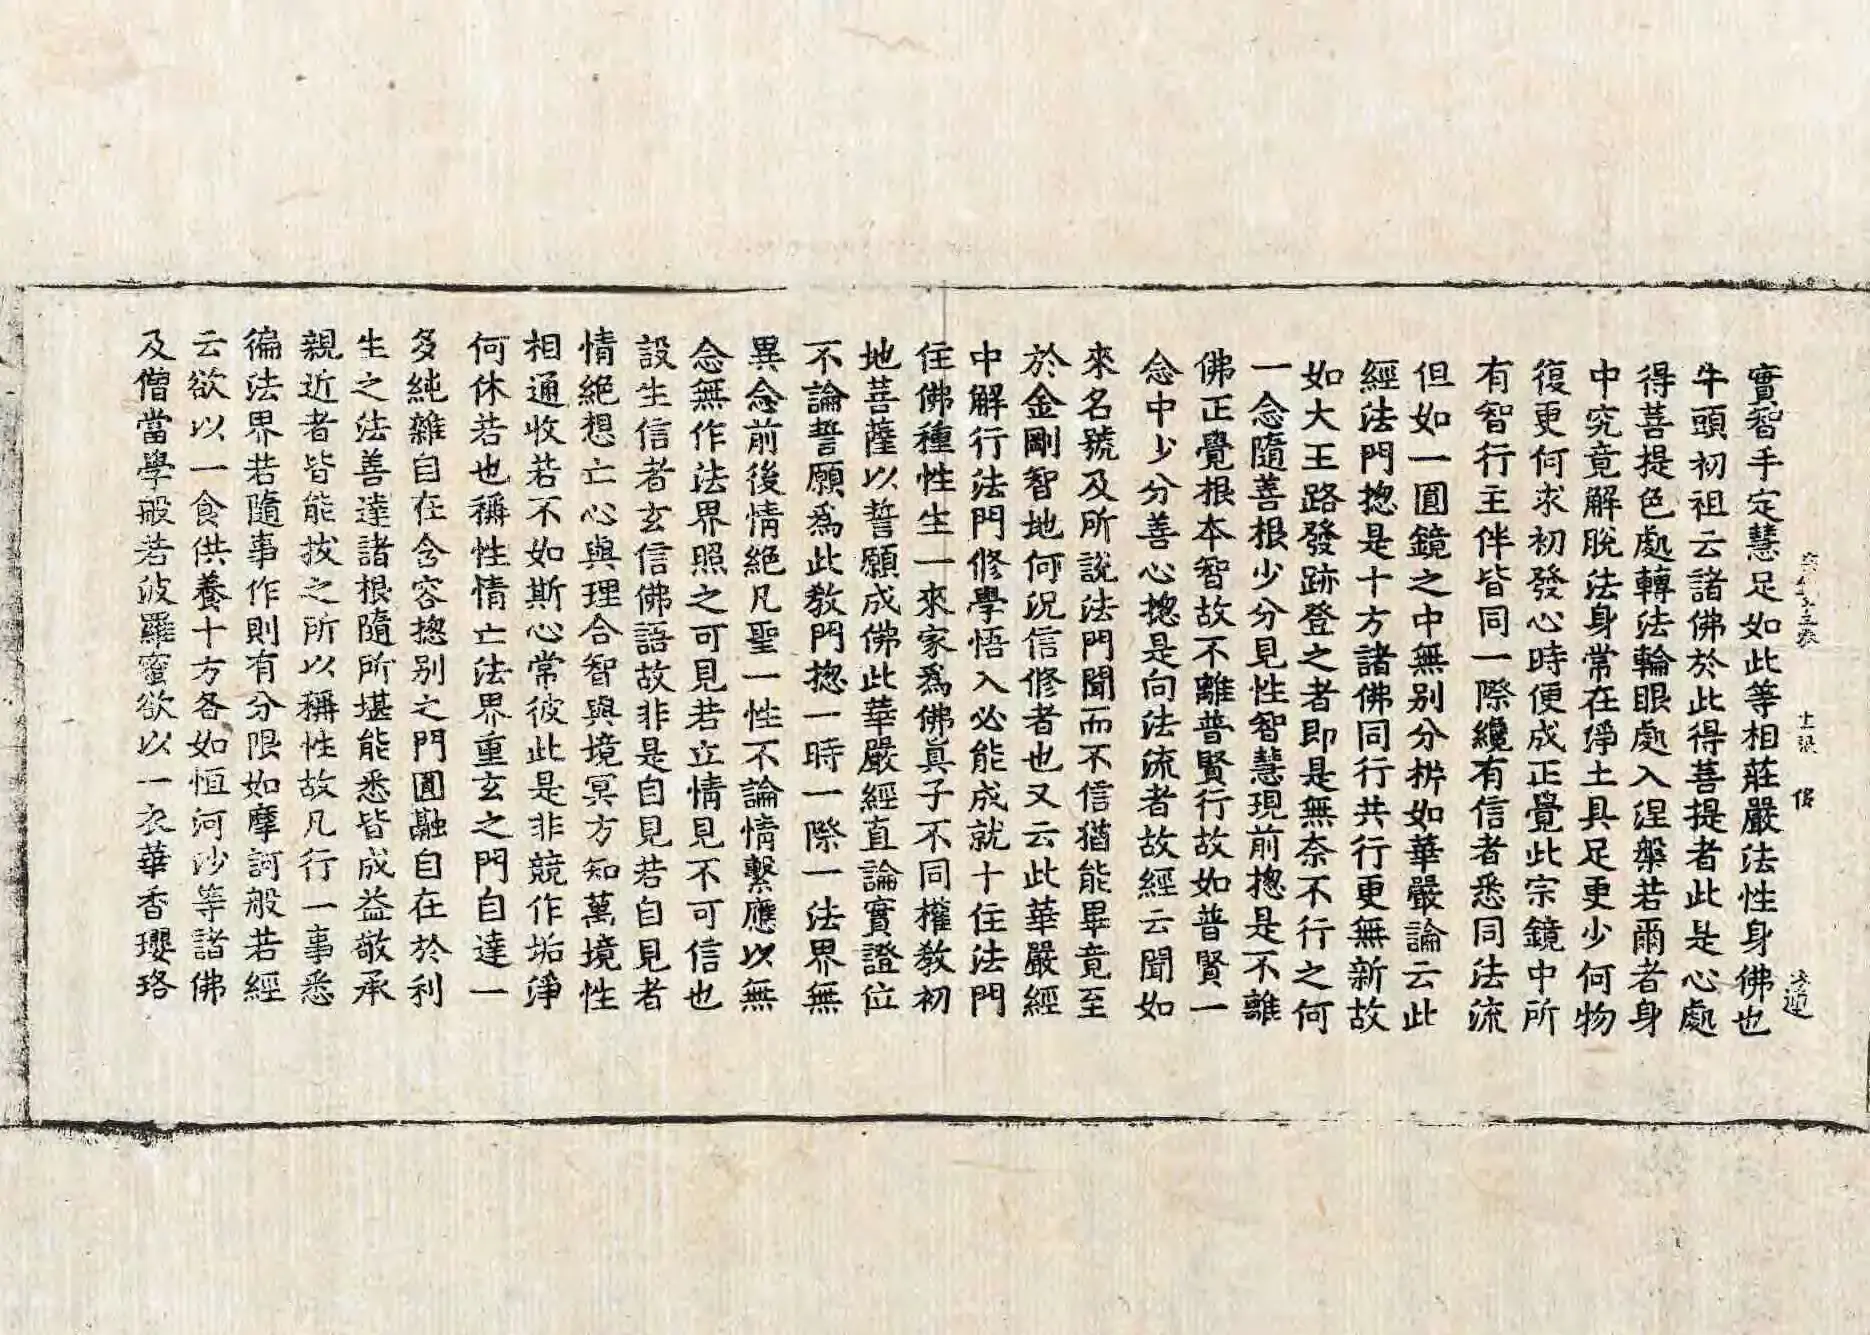 十一張
實智手定慧足如此等相莊嚴法性身佛也
牛頭初祖云諸佛於此得菩提者此是心處
得菩提色處轉法輪眼處入涅槃若爾者身
中究竟解脫法身常在淨土具足更少何物
復更何求初發心時便成正覺此宗鏡中所
有智行主伴皆同一際纔有信者悉同法流
但如一圓鏡之中無別分枿如華嚴論云此
經法門揔是十方諸佛同行共行更無新故
如大王路發跡登之者即是無奈不行之何
一念隨善根少分見性智慧現前揔是不離
佛正覺根本智故不離普賢行故如普賢一
念中少分善心揔是向法流者故經云聞如
來名號及所說法門聞而不信猶能畢竟至
於金剛智地何況信修者也又云此華嚴經
中解行法門修學悟入必能成就十住法門
住佛種性生一來家爲佛眞子不同權教初
地菩薩以誓願成佛此華嚴經直論實證位
不論誓願爲此教門揔一時一際一法界無
異念前後情絕凡聖一性不論情繫應以無
念無作法界照之可見若立情見不可信也
設生信者玄信佛語故非是自見若自見者
情絕想亡心與理合智與境冥方知萬境性
相通收若不如斯心常彼此是非競作垢淨
何休若也稱性情亡法界重玄之門自達一
多純雜自在含容揔別之門圓融自在於利
生之法善達諸根隨所堪能悉皆成益敬承
親近者皆能拔之所以稱性故凡行一事悉
徧法界若隨事作則有分限如摩訶般若經
云欲以一食供養十方各如恒河沙等諸佛
及僧當學般若波羅蜜欲以一衣華香瓔珞